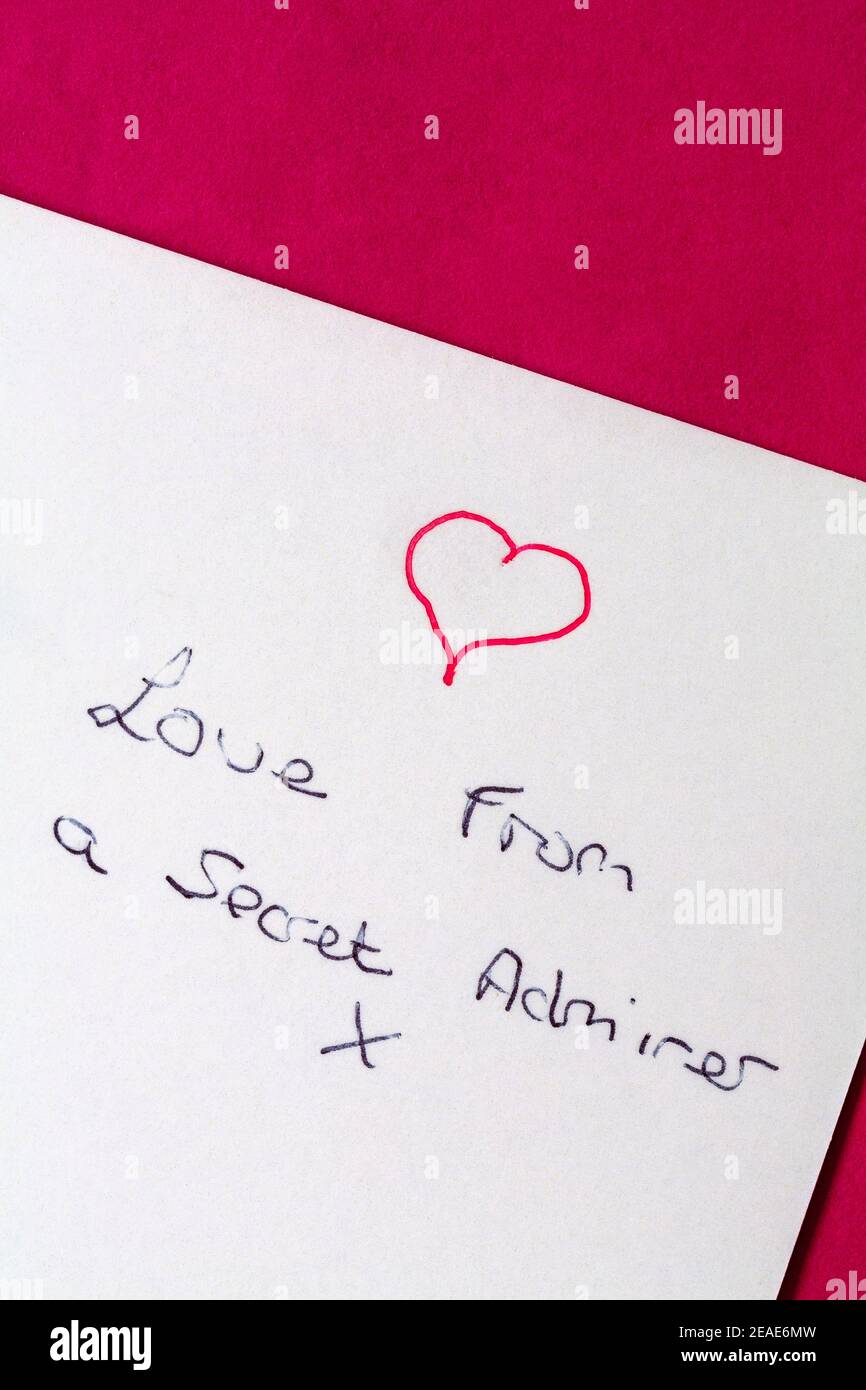 Love From
a Secret Admirer
X
alamy
alamy
alamy
Image ID: 2EAE6MW
www.alamy.com